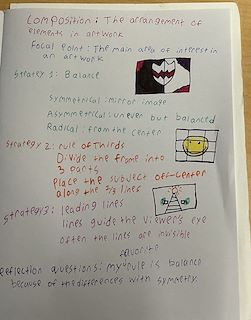 Composition: The arrangement of
elements in artwork
Focal Point: The main area of interest in
an artwork
Strategy 1: Balance
Symmetrical: mirror image
Asymmetrical: uneven but balanced
Radical: from the center
Strategy 2: rule of Thirds
Divide the frame into
3 parts
Place the subject off-center
along the 2/3 lines
Strategy 3: leading lines
lines guide the viewers eye
often the lines are invisible
favorite
reflection questions: my rule is balance
because of the differences with symmetry.